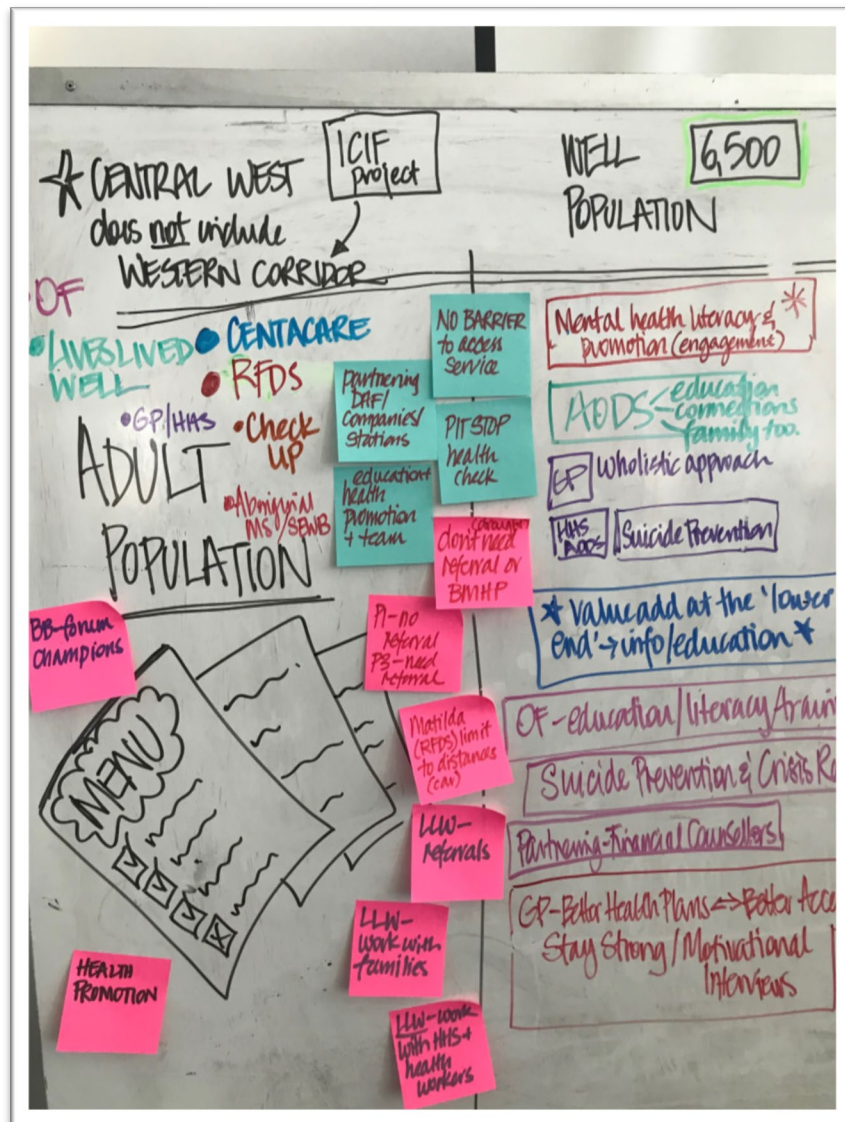 ☆ CENTRAL WEST
does not include
WESTERN CORRIDOR
ICIF
project
WELL
POPULATION
6,500
• OF
• LIVES LIVED
WELL
• CENTACARE
• RFDS
• GP/HHS
• Check
UP
• Aboriginal
MS/SEWB
ADULT
POPULATION
NO BARRIER
to access
service
partnering
DAF/
companies/
stations
PIT STOP
health
check
education +
health
promotion
+ team
don't need
referral or
BMHP
P1-no
referral
P3-need
referral
Matilda
(RFDS) limit
to distances
(car)
LLW-
referrals
LLW-
work with
families
LLW-work
with HHS+
health
workers
BB-forum
champions
MENU
HEALTH
PROMOTION
Mental health literacy &
promotion (engagement)
AODS
education
connections
family too.
GP
Wholistic approach
HHS
AODS
Suicide Prevention
* Value add at the 'lower
end' → info/education *
OF-education/literacy trainin
Suicide Prevention & Crisis Re
Partnering-Financial Counsellers
GP-Better Health Plans <=> Better Acce
Stay Strong/Motivational
Interviews